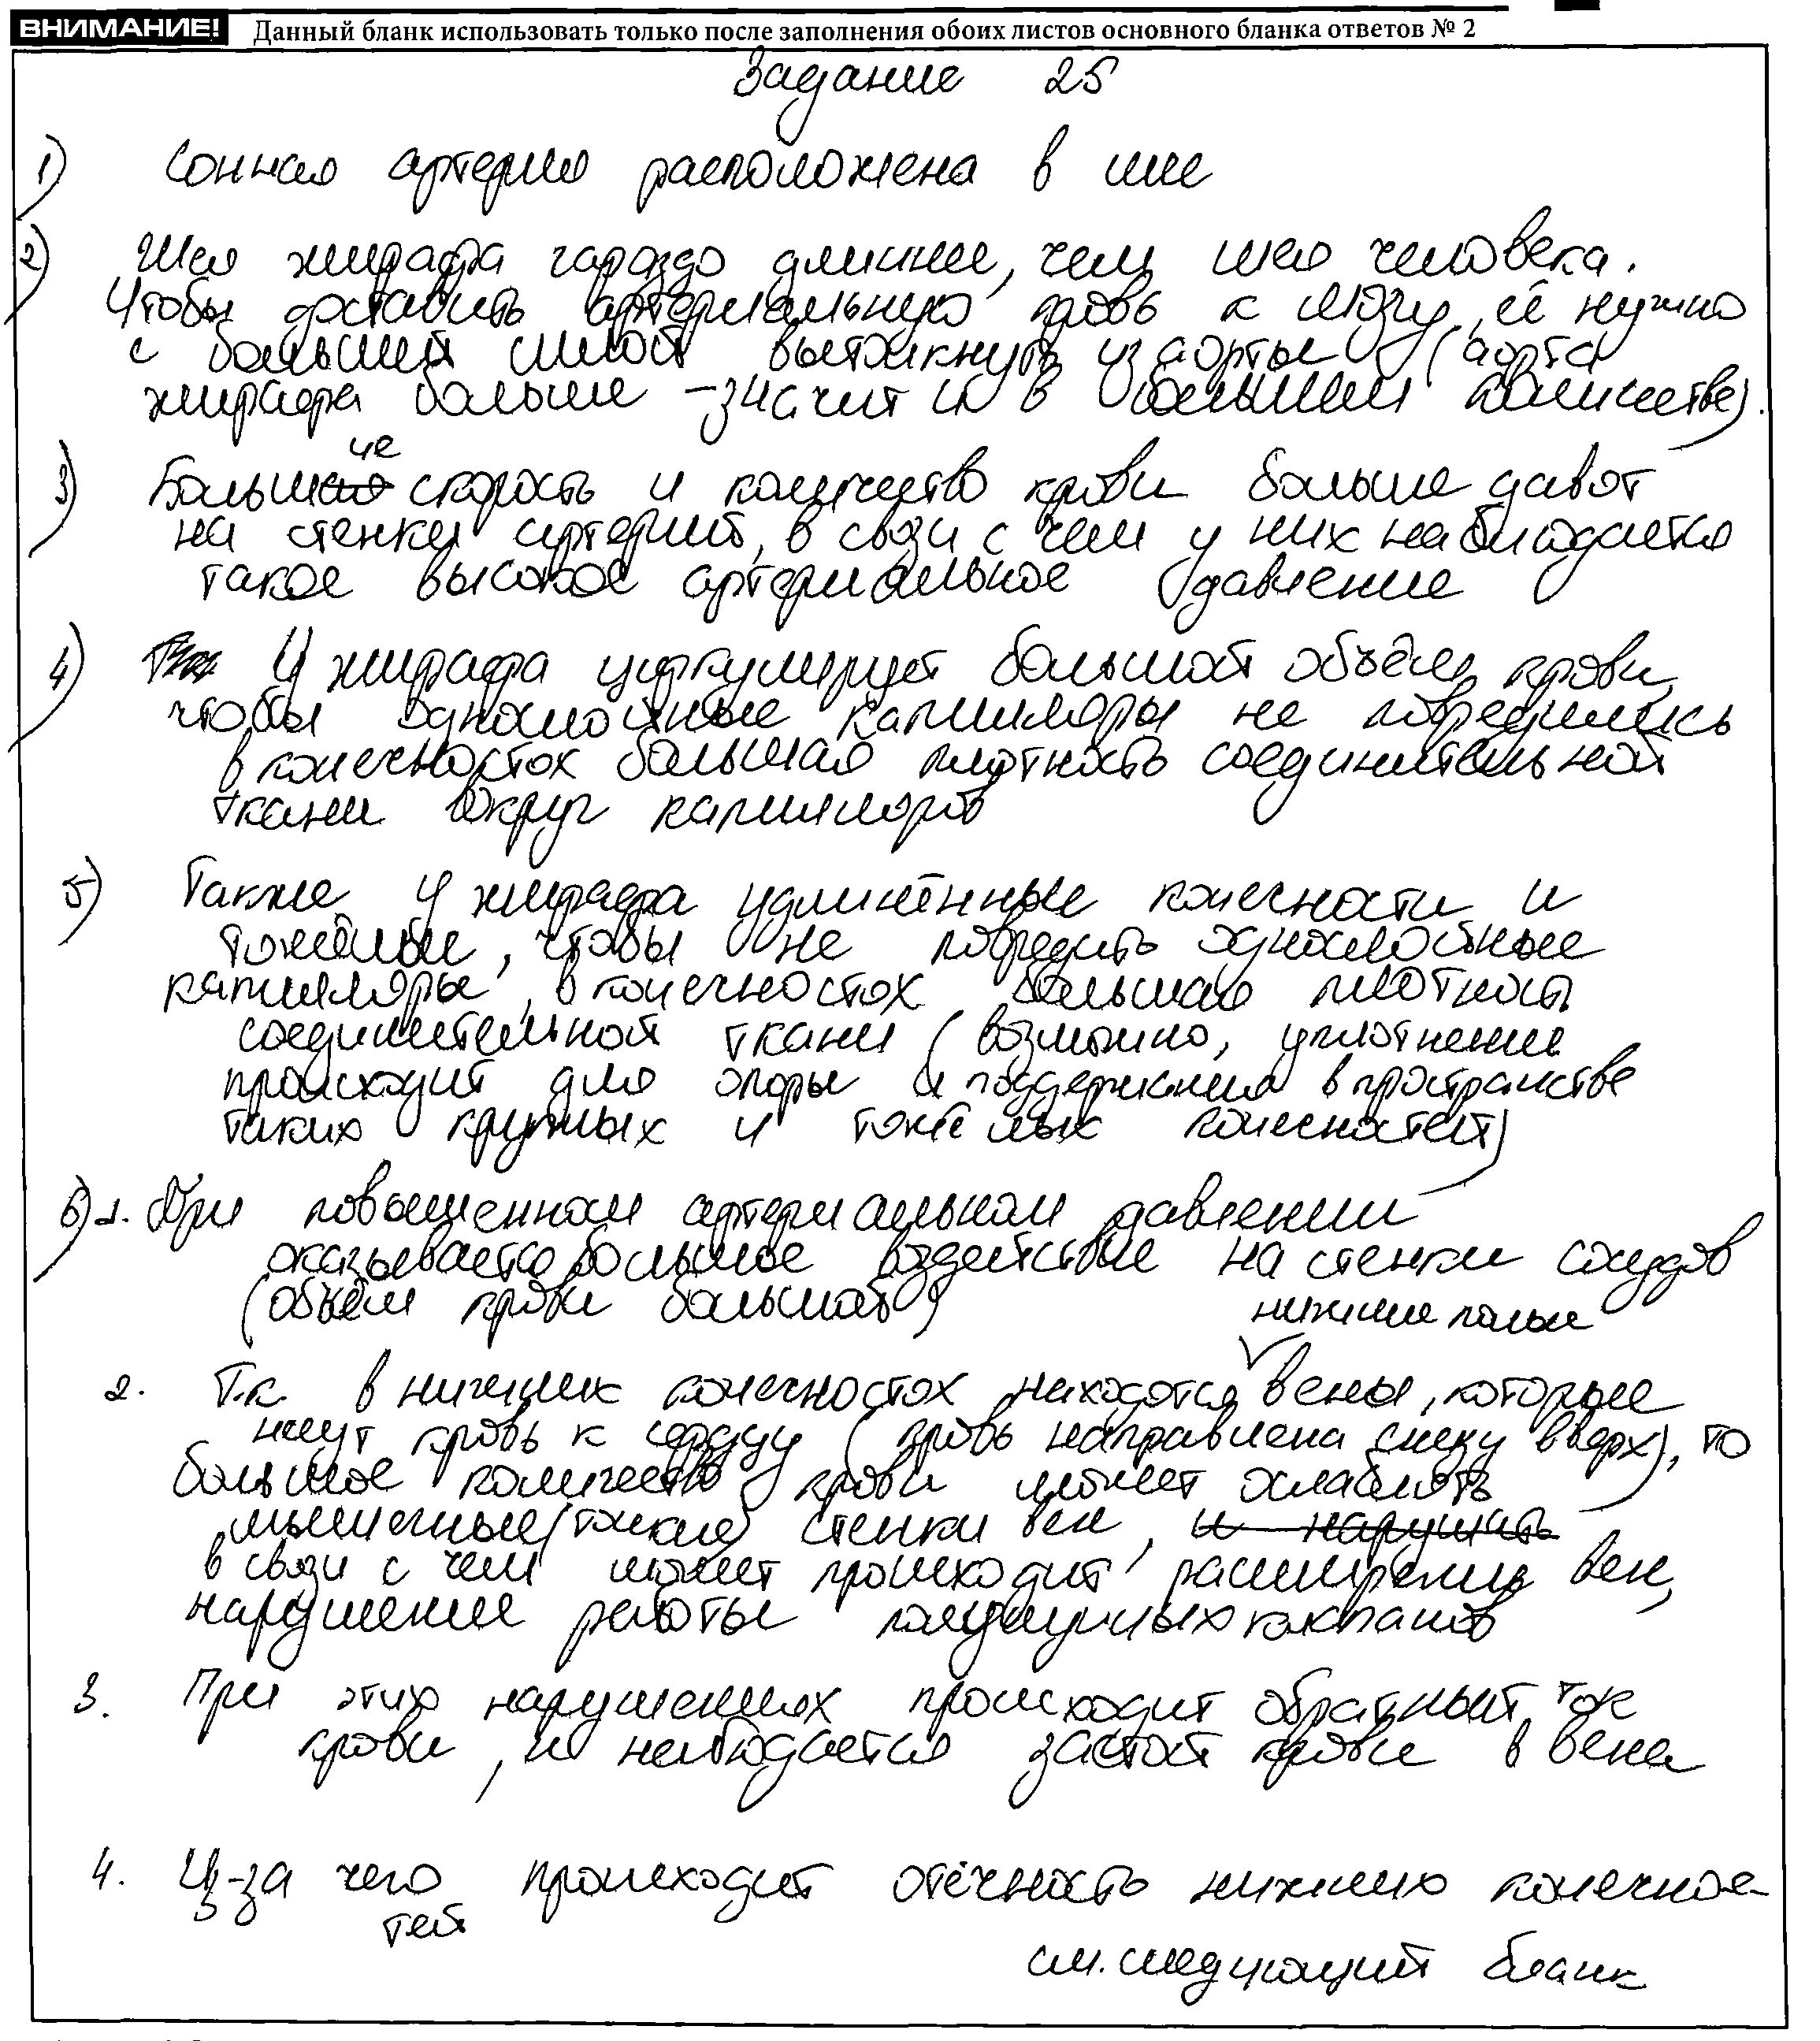 ВНИМАНИЕ! Данный бланк использовать только после заполнения обоих листов основного бланка ответов № 2
Задание 25
1) Сонная артерия расположена в шее
2) Шея жирафа гораздо длиннее, чем шея человека.
Чтобы доставить артериальную кровь к мозгу, её нужно
с большей силой вытолкнуть из аорты (аорта
жирафа больше - значит и в большем количестве).
3) Большие скорость и количество крови больше давят
на стенки артерий, в связи с чем у них наблюдается
такое высокое артериальное давление
4) У жирафа циркулирует большой объём крови,
чтобы однослойные капилляры не повредились
в конечностях большая плотность соединительной
ткани вокруг капилляров
5) Также у жирафа удлинённые конечности и
тяжёлые, чтобы не повредить однослойные
капилляры, в конечностях большая плотность
соединительной ткани (возможно, уплотнение
происходит для опоры и поддержания в пространстве
таких крупных и тяжёлых конечностей)
6) 1. При повышенном артериальном давлении
оказывается большое воздействие на стенки сосудов
(объём крови большой)
2. Т.к. в нижних конечностях находятся нижние полые вены, которые
несут кровь к сердцу (кровь направлена снизу вверх), то
большое количество крови может ослаблять
мышечные (тонкие) стенки вен, и нарушать
в связи с чем может происходит расширение вен,
нарушение работы полулунных клапанов
3. При этих нарушениях происходит обратный ток
крови, и наблюдается застой крови в вена
4. Из-за чего происходит отёчность нижних конечнос-
тей
см. следующий бланк